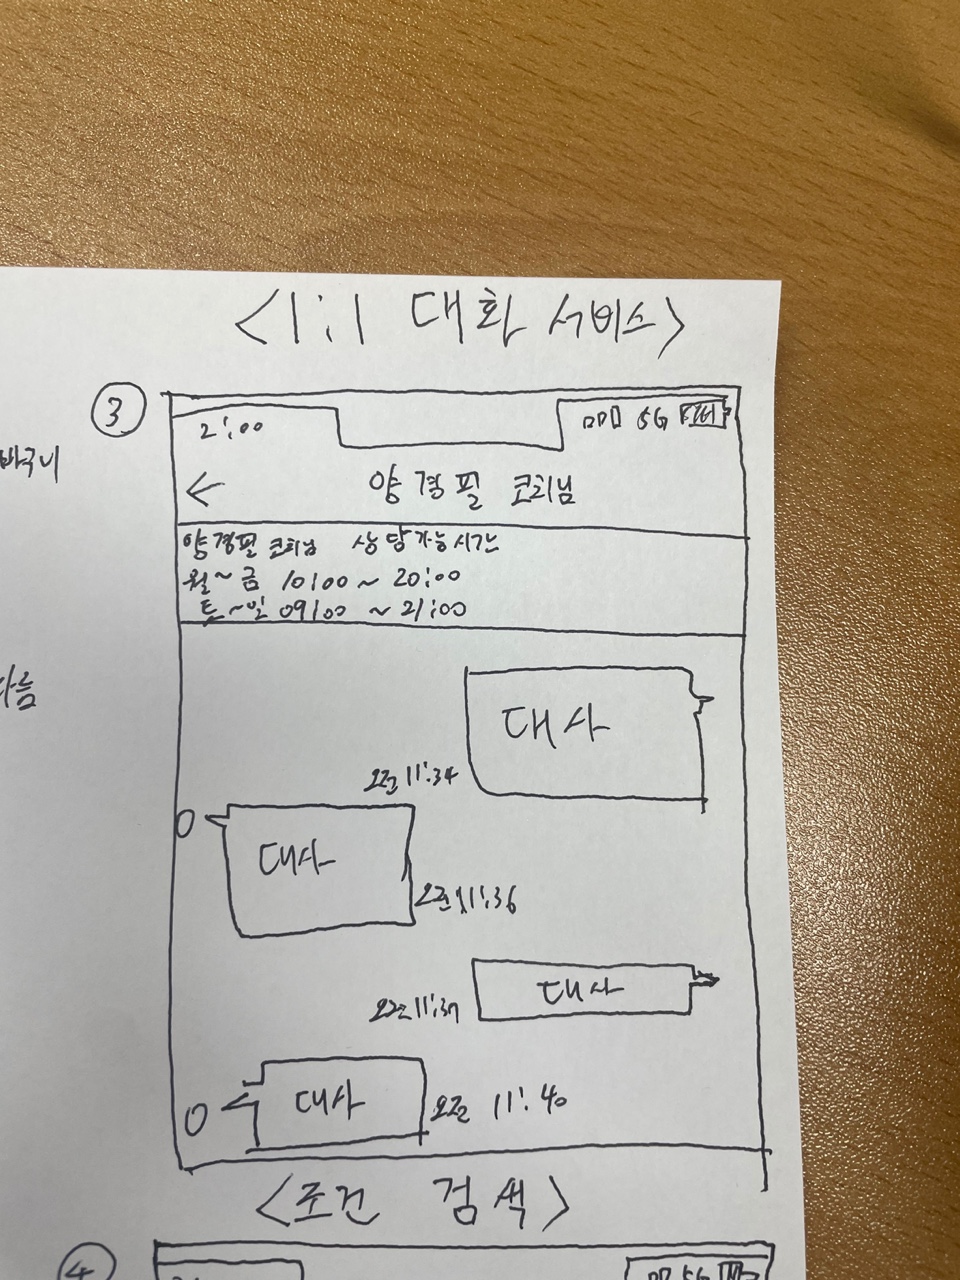 <1:1 대화 서비스>
③
2:00
5G
바구니
←
양경필 코치님
양경필 코치님 상담가능시간
월~금 10:00 ~ 20:00
토~일 09:00 ~ 21:00
다음
대사
오전 11:34
대사
오전 11:36
대사
오전 11:37
대사
오전 11:40
<조건 검색>
④
5G